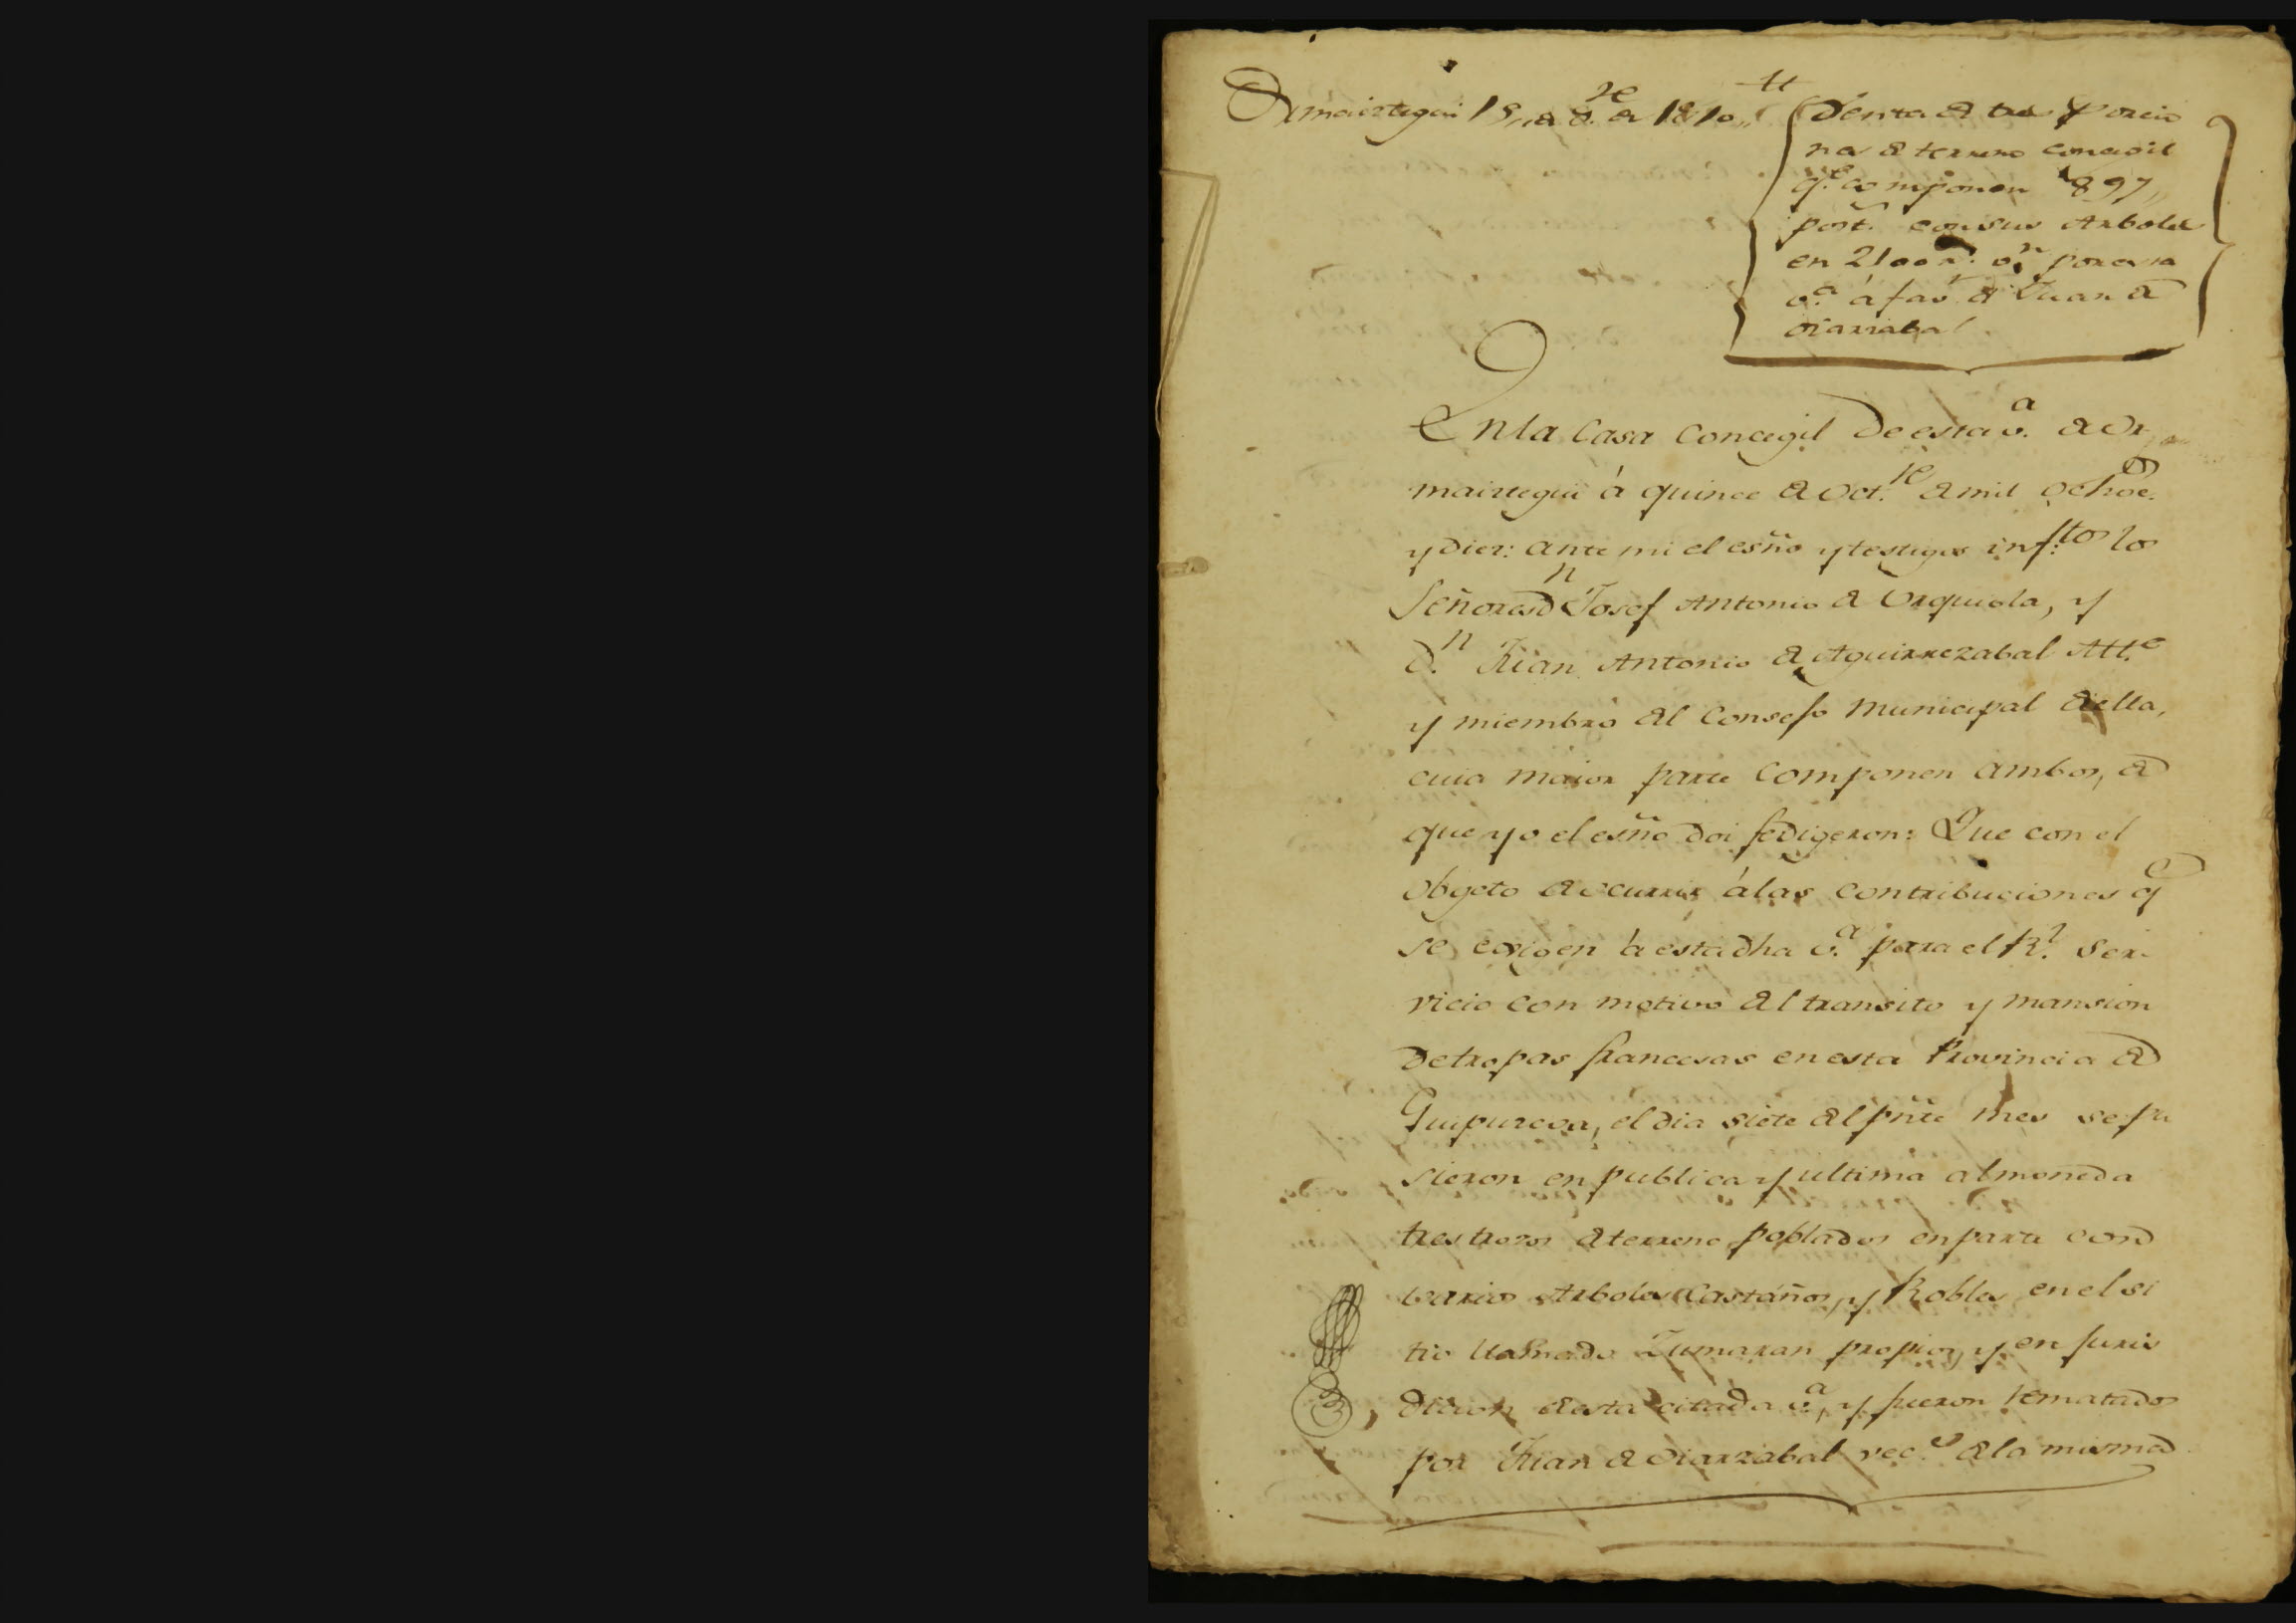 Ormaiztegui 15,, de 8.re de 1810,,
Venta de tres porcio
nes de terreno concegil
q.e componen 897,,
post.s con sus Arboles
en 2100 r.s v.n por esta
v.a á fav.r de Juan de
Oiarzabal.
En la Casa Concegil de esta v.a de Or
maiztegui á quince de Oct.re de mil ochoc.s
y diez: ante mi el esño y testigos inf.tos los
Señores d.n Josef Antonio de Urquiola, y
d.n Juan Antonio de Aguirrezabal Alt.e
y miembro del Consejo Municipal de ella,
cuia maior parte componen ambos, de
que yo el esño doi fe digeron: Que con el
objeto de ocurrir á las contribuciones q.e
se exigen á esta dha v.a para el R.l Ser-
vicio con motivo del transito y mansion
de tropas francesas en esta Provincia de
Guipuzcoa, el dia siete del pñte mes se pu
sieron en publica y ultima almoneda
tres trozos de terreno poblados en parte con
varios Arboles Castaños, y Robles en el si
tio llamado Zumaran propios, y en juris
diccion de esta citada v.a, y fueron rematados
por Juan de Oiarzabal vec.o de la misma